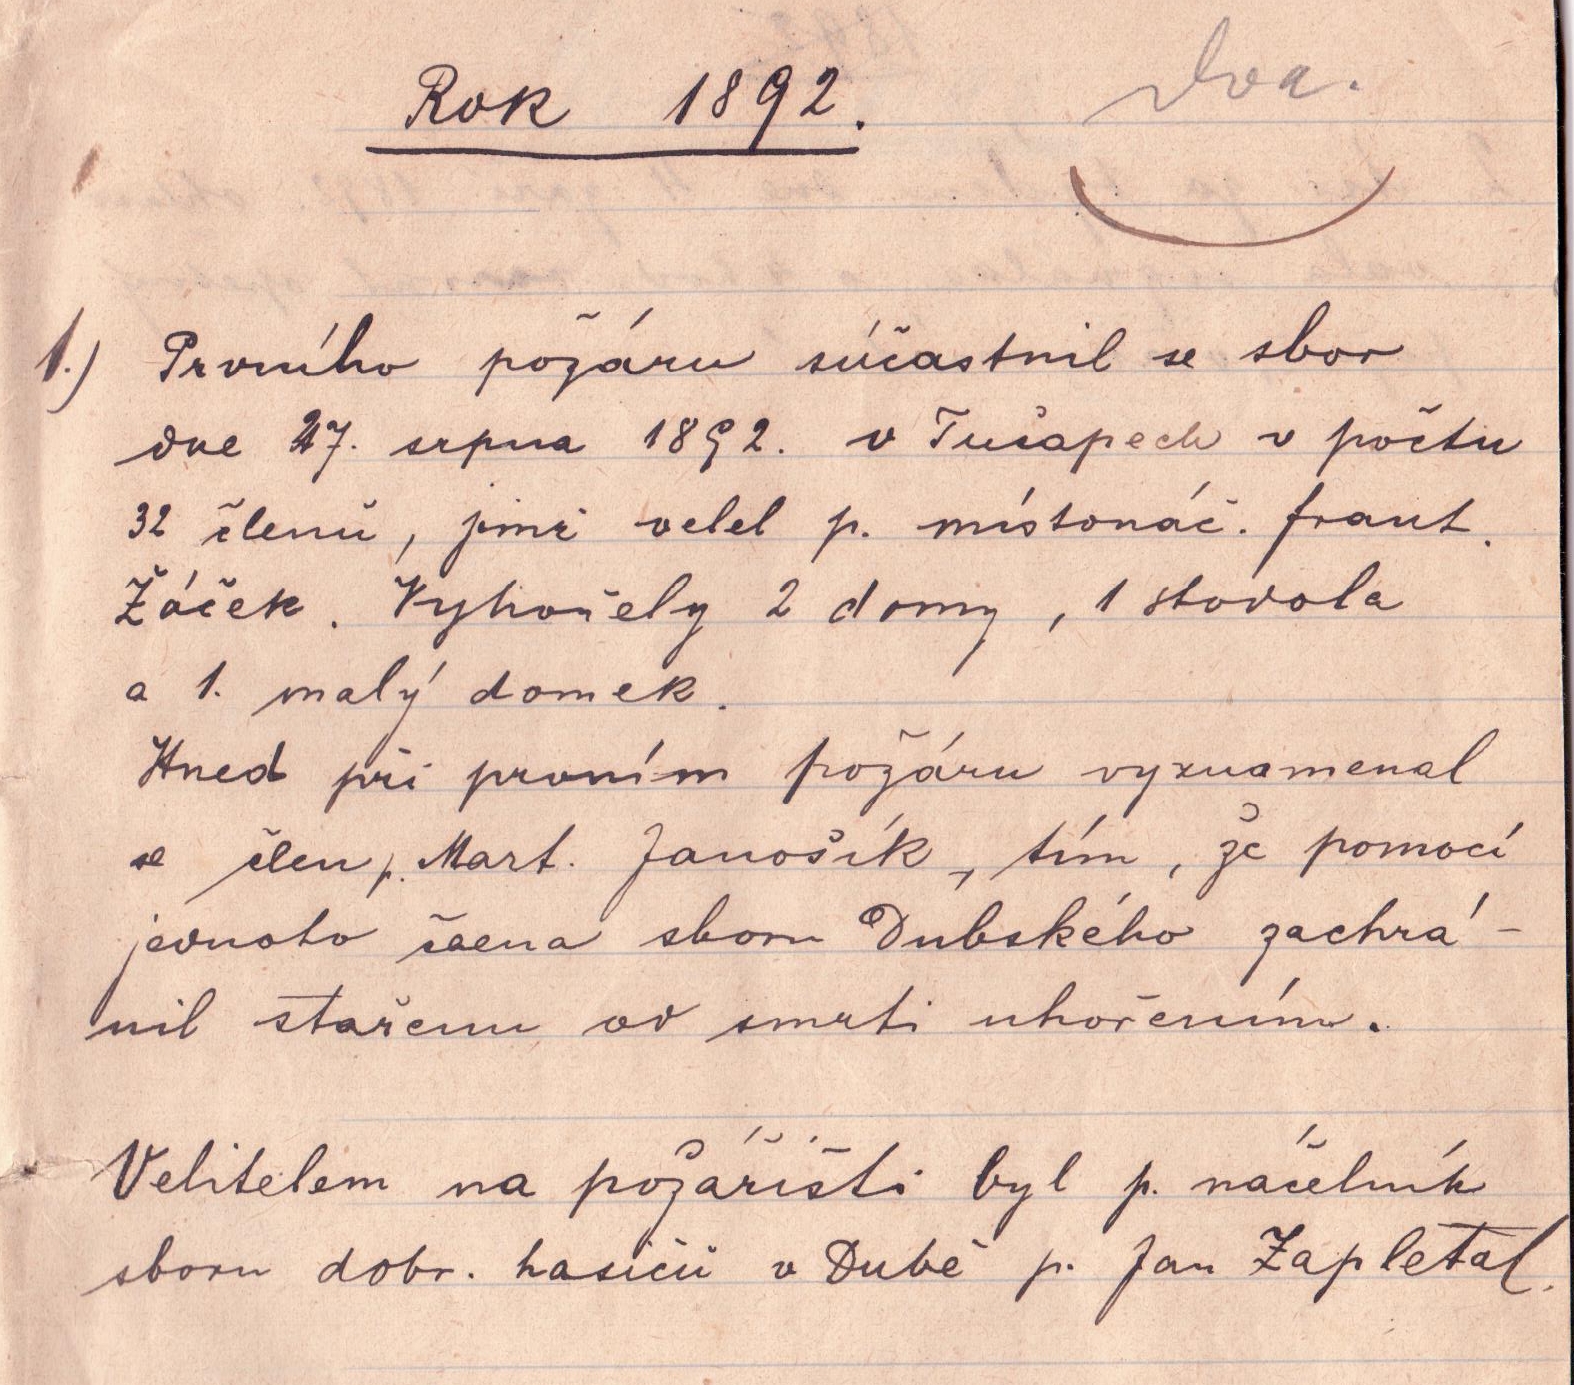 Rok 1892.
Dva.
1.) Prvního požáru súčastnil se sbor
dne 27. srpna 1892. v Tučapech v počtu
32 členů, jimž velel p. místonáč. Frant.
Žáček. Vyhořely 2 domy, 1 stodola
a 1. malý domek.
Hned při prvním požáru vyznamenal
se člen p. Mart. Janošík, tím, že pomocí
jednoho člena sboru Dubského zachrá-
nil stařenu od smrti uhořením.
Velitelem na požářišti byl p. náčelník
sboru dobr. hasičů v Dubě p. Jan Zapletal.